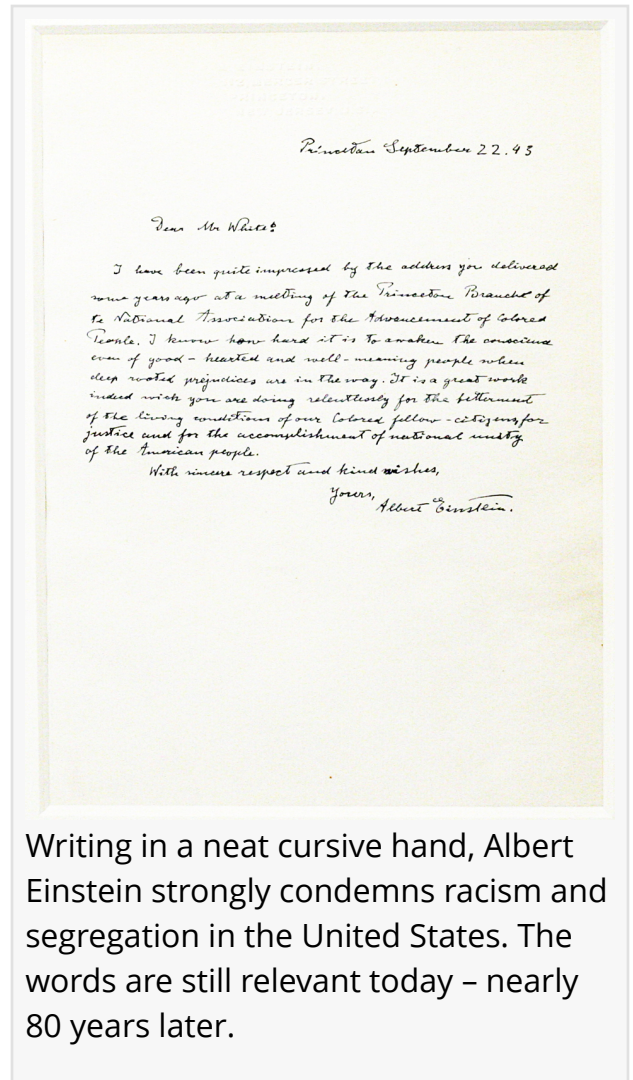 Princeton September 22. 43
Dear Mr White:
I have been quite impressed by the address you delivered
some years ago at a meeting of the Princeton Branche of
te National Association for the Advancement of Colored
People. I know how hard it is to awaken the conscience
even of good-hearted and well-meaning people when
deep rooted prejudices are in the way. It is a great work
indeed wich you are doing relentlessly for the betterment
of the living conditions of our Colored fellow-citizens, for
justice and for the accomplishment of national unity
of the American people.
With sincere respect and kind wishes,
Yours,
Albert Einstein.
Writing in a neat cursive hand, Albert
Einstein strongly condemns racism and
segregation in the United States. The
words are still relevant today – nearly
80 years later.